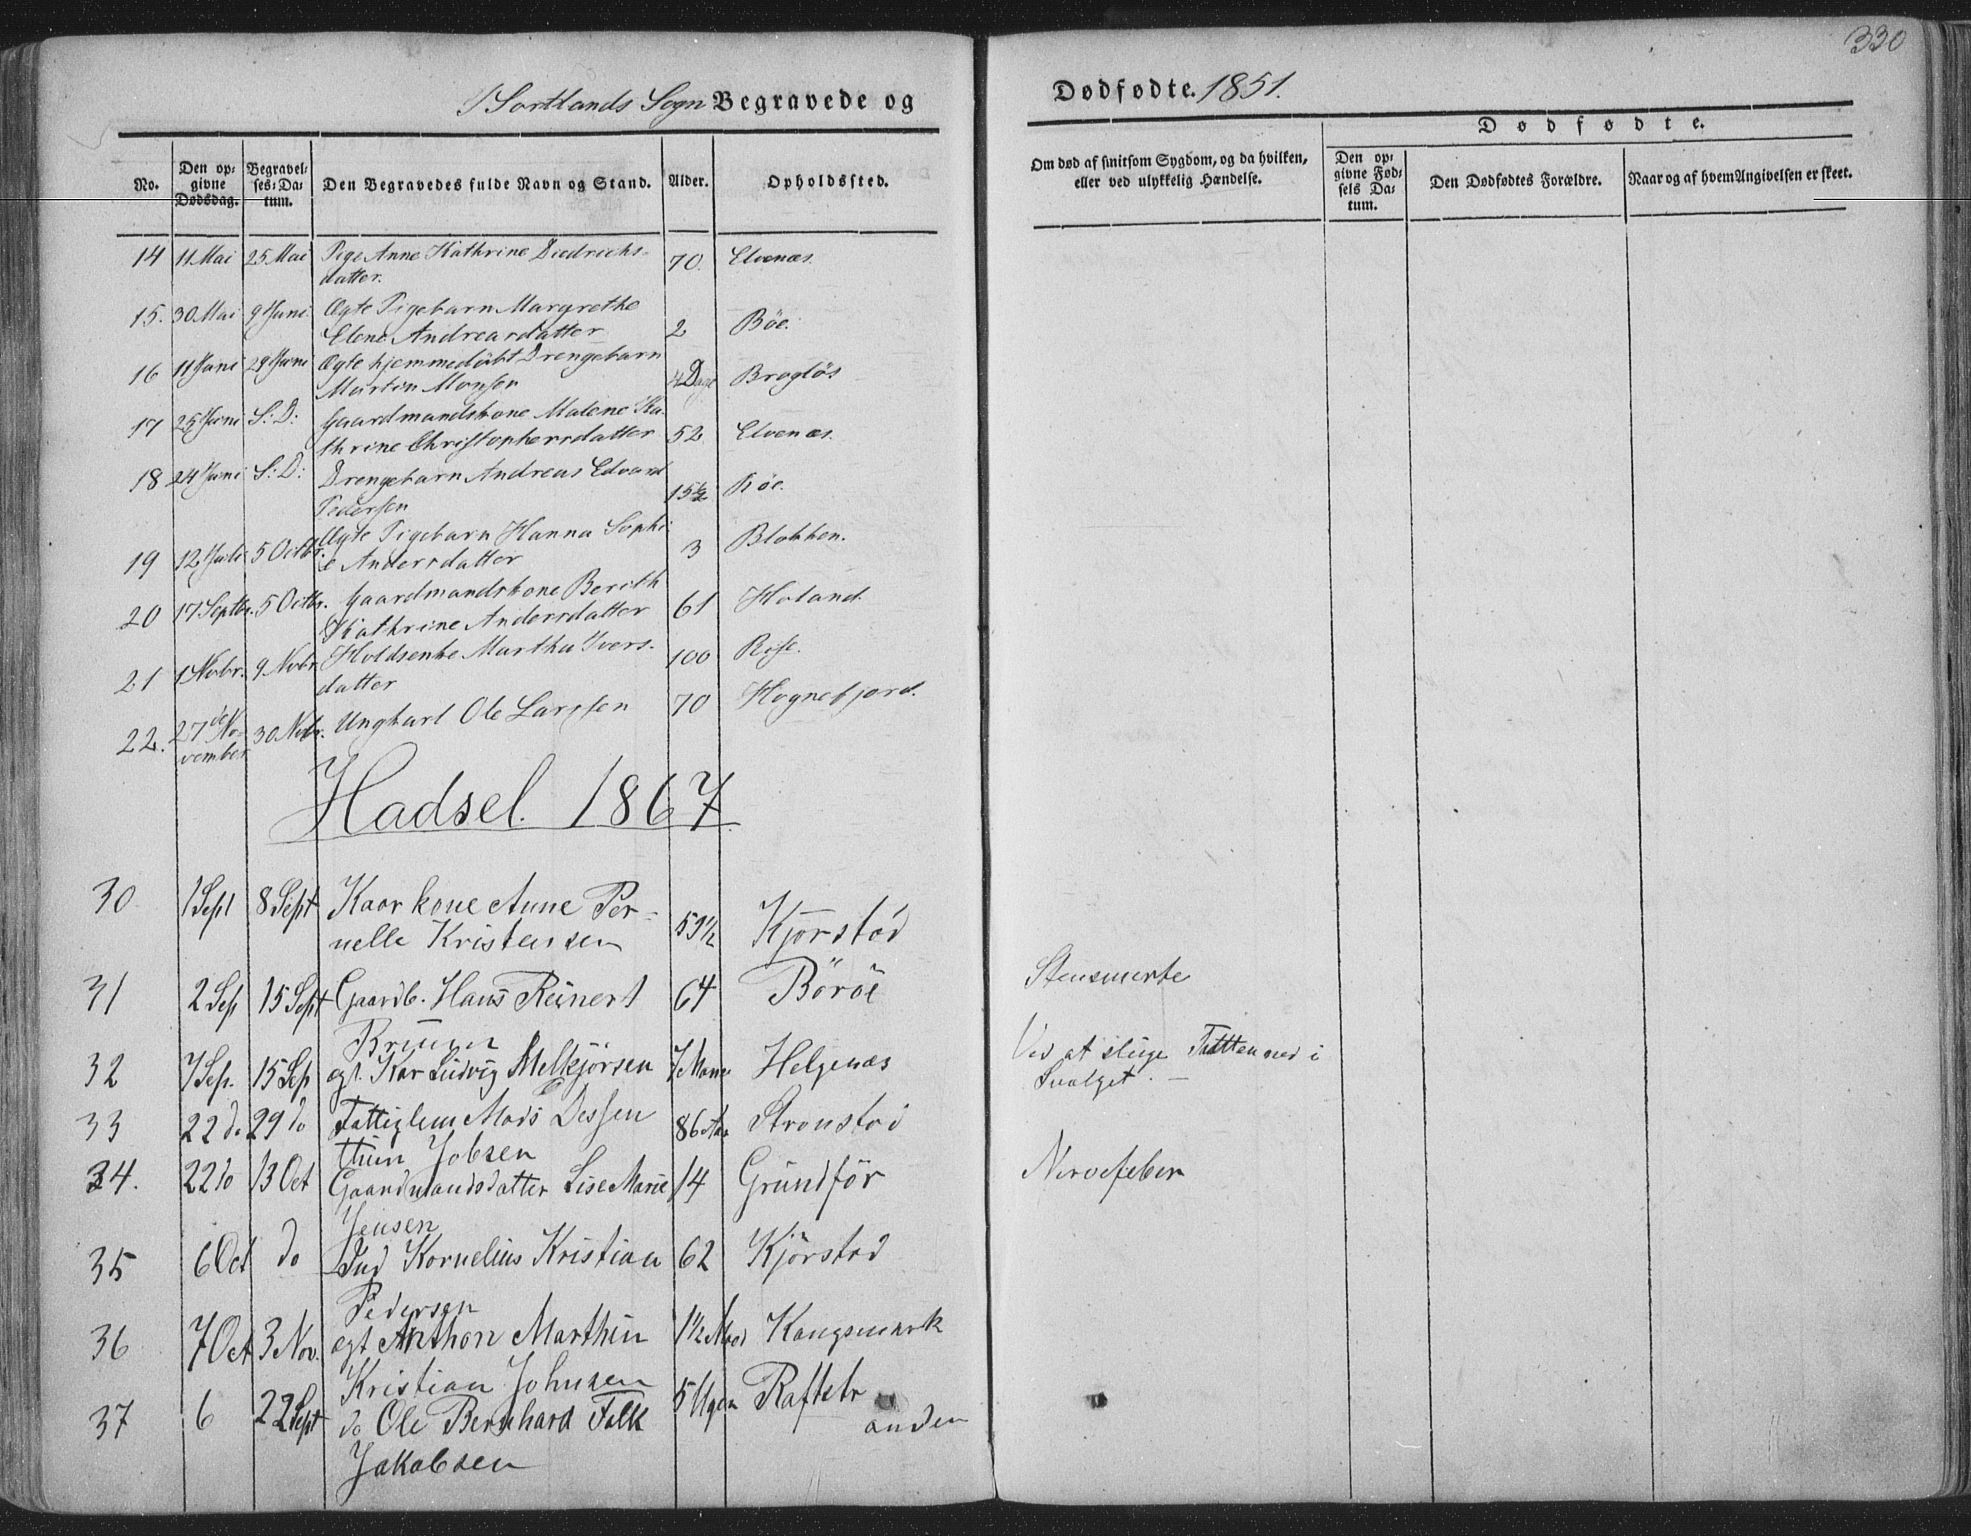 330
I Sortlands Sogn Begravede og
Dødfødte. 1851.
No.
Den op-
givne
Dødsdag.
Begravel-
ses-Da-
tum.
Den Begravedes fulde Navn og Stand.
Alder.
Opholdssted.
Om død af smitsom Sygdom, og da hvilken,
eller ved ulykkelig Hændelse.
Dødfødte.
Den op-
givne Fød-
sels Da-
tum.
Den Dødfødtes Forældre.
Naar og af hvem Angivelsen er skeet.
14 11 Mai 25 Mai Pige Anne Kathrine Diedrichs-
datter. 70. Elvenæs.
15. 30 Mai 9 Juni Ægte Pigebarn Margrethe
Elene Andreasdatter 2 Böe.
16 11 Juni 29 Juni Ægte hjemmedöbt Drengebarn
Martin Monsen 4 Dage
17 25 Juni S: D: Gaardmandskone Malene Ka-
thrine Christophersdatter 52 Elvenæs.
18 24 Juni S: D: Drengebarn Andreas Edvard
Pedersen 15 1/2
19 12 Juli 5 Octbr. Ægte Pigebarn Hanna Sophi-
e Andersdatter 3 Blokken.
20 17 Septbr. 5 Octbr. Gaardmandskone Berith
Kathrine Andersdatter 61 Holand
21 1 Novbr. 9 Novbr. Huldsenke Martha Ivers-
datter 100
22. 27de No-
vember 30 Novbr. Ungkarl Ole Larssen 70 Hognefjord.
Hadsel. 1867.
30 1 Sept 8 Sept Kaarkone Anne Per-
nelle Kristensen 59 1/2 Kjörstad
31 2 Sep 15 Sept Gaardb. Hans Reinert
Bruun 64 Böröe Stensmerte
32 7 Sep. 15 Sep egt. Kar Ludvig Melkjörsen 7 Maan Helgenæs Ved at sluge Tutten ned i
Svælget. —
33 22 do 29 do Fattiglem Mads Dessen
86 Aar Stronstad
thun Jobsen
34. 22 do 13 Oct Gaardmandsdatter Lise Marie
Jensen 14 Grundför Nervefeber
35 6 Oct do Ind Kornelius Kristian
Pedersen 62 Kjörstad
36 7 Oct 3 Nov. egt Anthon Marthin
Kristian Johnsen 1 1/2 Kongsmark
37 6 22 Sept do Ole Bernhard Falk
Jakobsen 5 Ugen Raftstr
anden